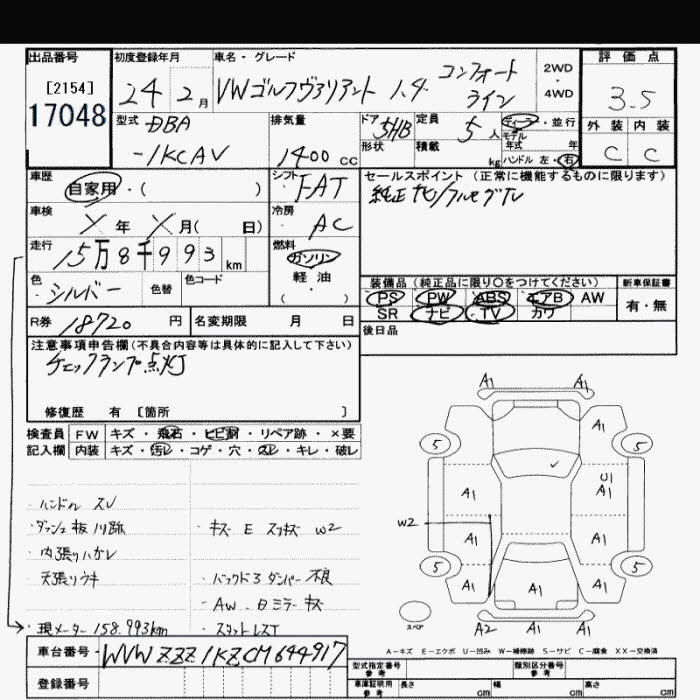 出品番号
[2154]
17048
初度登録年月
24 2月
車名・グレード
VWゴルフヴァリアント 1.4 コンフォート
ライン
2WD
・
4WD
評価点
3.5
型式
DBA
-1KCAV
排気量
1400 cc
ドア
5HB
形状
定員
5人
積載
kg
ディーラー・並行
モデル
年式 年
ハンドル 左・右
外装 内装
C C
車歴
自家用・( )
シフト
FAT
セールスポイント(正常に機能するものに限ります)
純正ナビ/フルセグTV
車検
X年 X月( 日)
冷房
AC
走行
15万8千993km
燃料
ガソリン
・
軽油
( ・ )
色
・シルバー
色替
色コード
装備品(純正品に限り○をつけてください)
PS PW ABS エアB AW
SR ナビ TV カワ
新車保証書
有・無
R券 18720 円
名変期限 月 日
後日品
注意事項申告欄(不具合内容等は具体的に記入して下さい)
チェックランプ点灯
修復歴 有 [箇所 ]
検査員 FW キズ・飛石・ヒビ割・リペア跡・×要
記入欄 内装 キズ・汚レ・コゲ・穴・スレ・キレ・破レ
・ハンドル スレ
・ダッシュ板ノリ跡
・内張リハガレ
・天張リウキ
・現メーター 158.993km
・キズ E スリキズ W2
・バックドアダンパー不良
・AW. Dミラーキズ
・スタットレスT
A1 A1
A1
5 5
A1
U1
A1
W2
A1 A1
5 5
A1 A1 A1
スペア
A2 A1
A-キズ E-エクボ U-凹み W-補修跡 S-サビ C-腐食 XX-交換済
車台番号 WVWZZZ1KZCM644917
登録番号
型式指定番号
参考
類別区分番号
参考
車庫証明用
参考
長さ cm 幅 cm 高さ cm